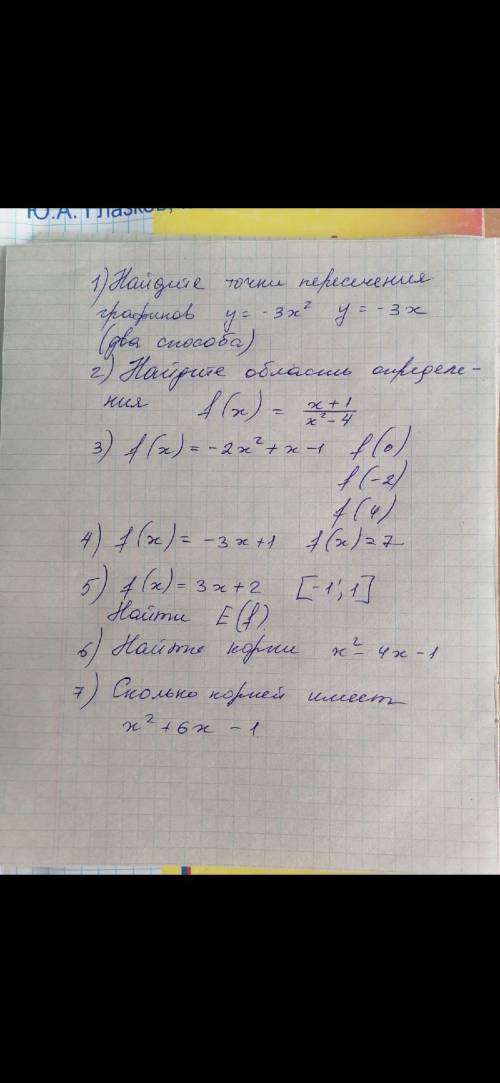 Ю.А. Глазков,
1) Найдите точки пересечения
графиков y = -3x² y = -3x
(два способа)
2) Найдите область определе-
ния f(x) = (x+1)/(x²-4)
3) f(x) = -2x² + x - 1 f(0)
f(-2)
f(4)
4) f(x) = -3x+1 f(x)=7
5) f(x) = 3x+2 [-1; 1]
Найти E(f).
6) Найти корни x² - 4x - 1
7) Сколько корней имеет
x² + 6x - 1